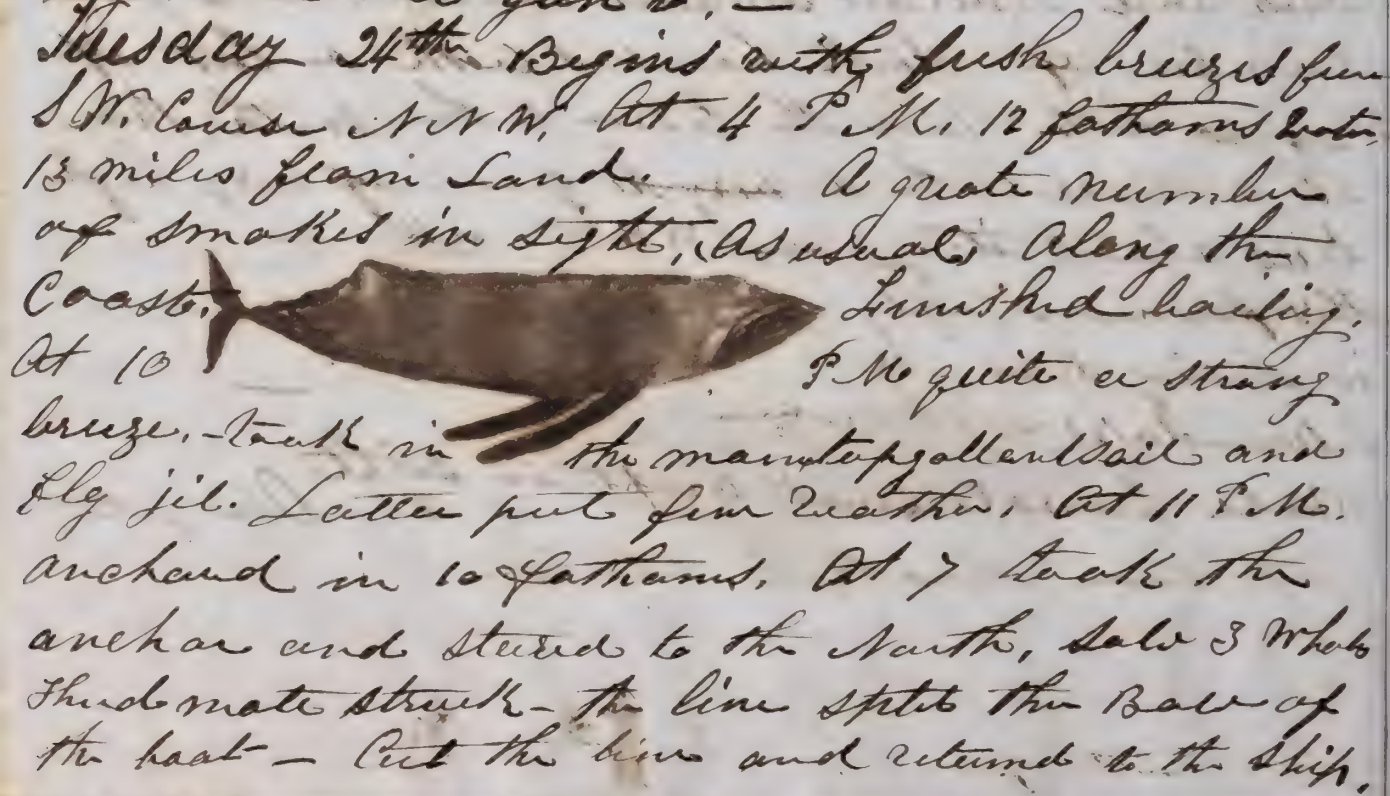 Tuesday 24th Begins with fresh breezes from
S W. Course N N W. At 4 P M. 12 fathoms water
13 miles from Land. A greate number
of smokes in sight, As usual, Along the
Coast. Finished boiling.
At 10 P M quite a strong
breeze, - took in the maintopgallantsail and
Flg jib. Latter part fine Weather. At 11 P M.
anchard in 10 fathoms. At 7 took the
anchor and steered to the North, Saw 3 Whales
Third mate struck - the line split the Bow of
the boat - Cut the line and returned to the ship.